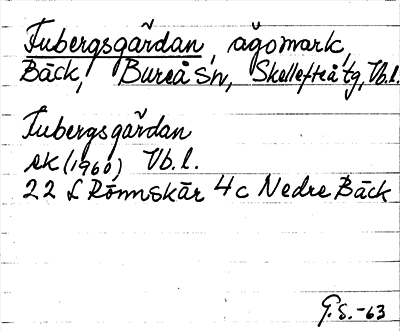 Tubergsgårdan, ägomark,
Bäck, Bureå sn, Skellefteå tg, Vb.l.
Tubergsgårdan
ek (1960) Vb.l.
22 L Rönnskär 4c Nedre Bäck
G.S.-63